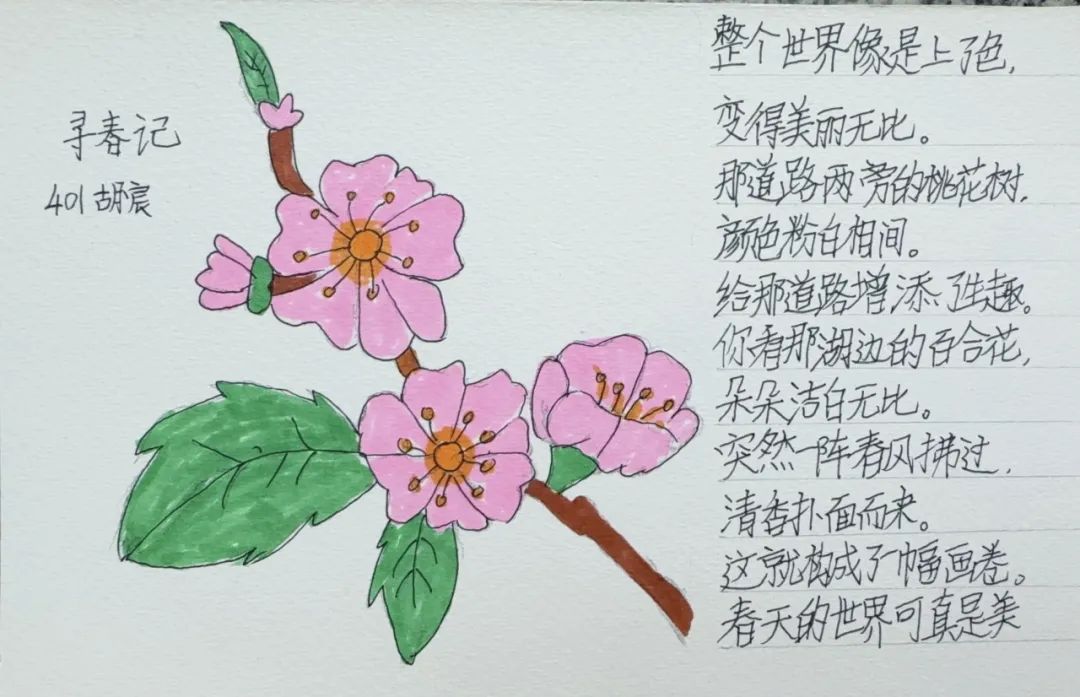 寻春记
401胡宸
整个世界像是上了色,
变得美丽无比。
那道路两旁的桃花树,
颜色粉白相间。
给那道路增添了生趣。
你看那湖边的百合花,
朵朵洁白无比。
突然一阵春风拂过,
清香扑面而来。
这就构成了一幅画卷。
春天的世界可真是美